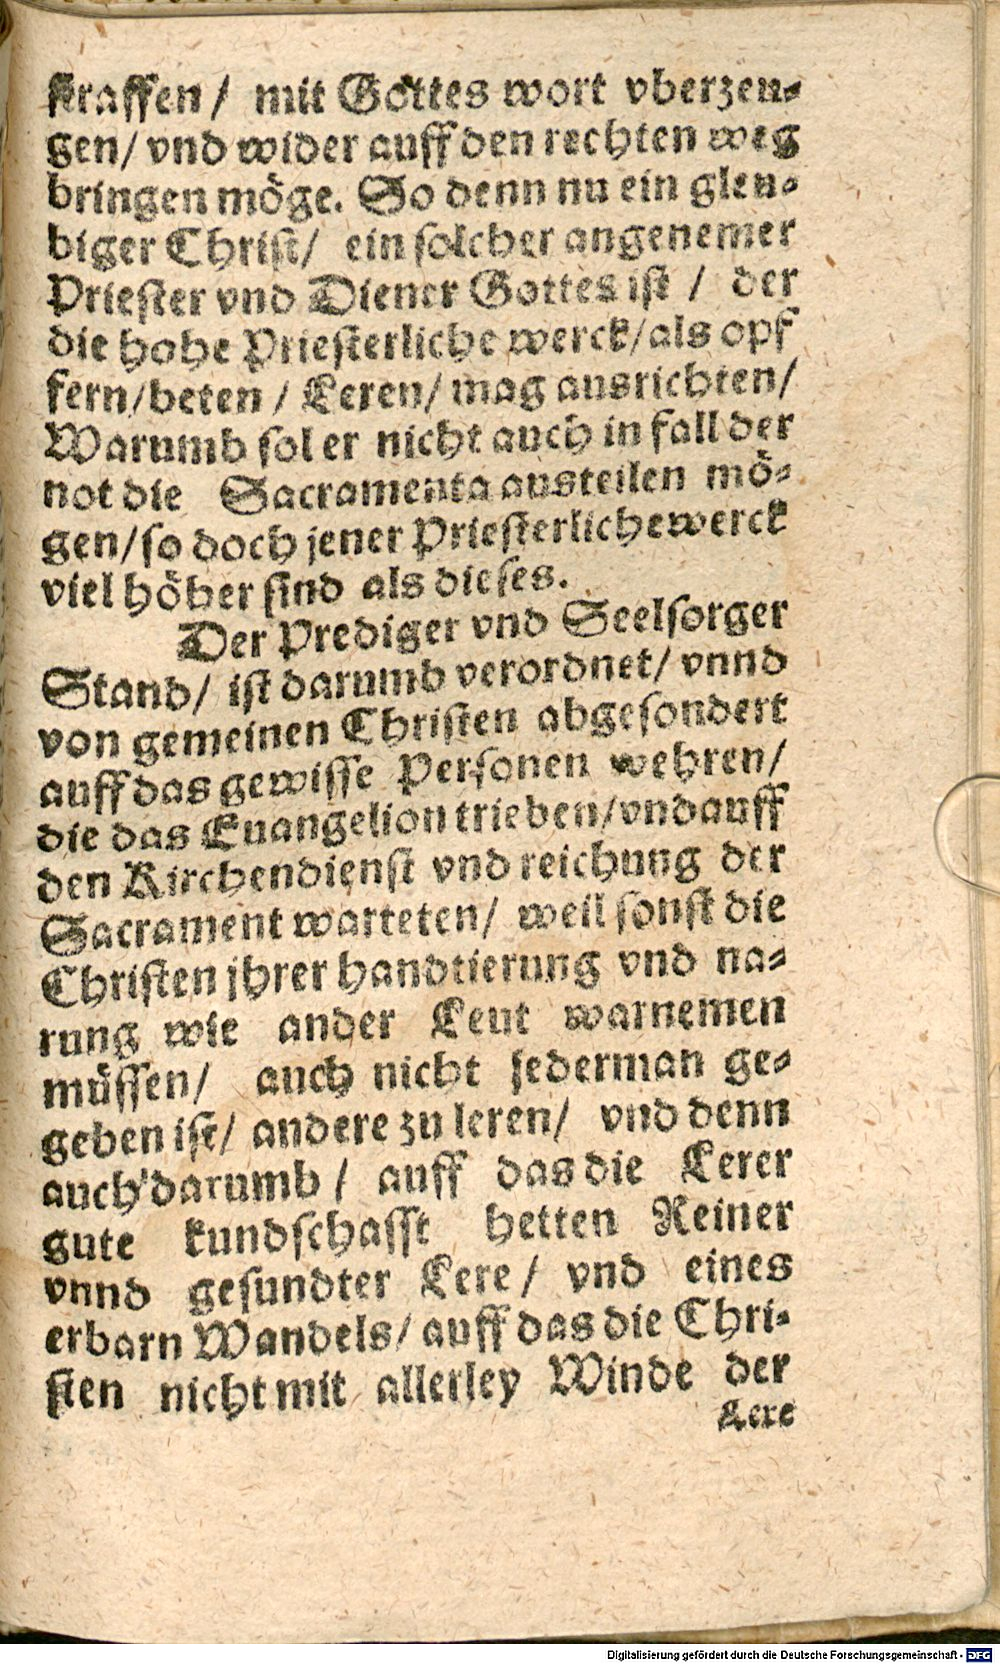 straffen / mit Gottes wort vberzeu-
gen/ vnd wider auff den rechten weg
bringen möge. So denn nu ein gleu-
biger Christ/ ein solcher angenemer
Priester vnd Diener Gottes ist / der
die hohe Priesterliche werck/als opf
fern/beten / Leren/ mag ausrichten/
Warumb sol er nicht auch in fall der
not die Sacramenta austeilen mö-
gen/so doch jener Priesterliche werck
viel höher sind als dieses.
Der Prediger vnd Seelsorger
Stand/ ist darumb verordnet/ vnnd
von gemeinen Christen abgesondert
auff das gewisse Personen wehren/
die das Euangelion trieben/vnd auff
den Kirchendienst vnd reichung der
Sacrament warteten/ weil sonst die
Christen jhrer handtierung vnd na-
rung wie ander Leut warnemen
müssen/ auch nicht jederman ge-
geben ist/ andere zu leren/ vnd denn
auch darumb / auff das die Lerer
gute kundschafft hetten Reiner
vnnd gesundter Lere / vnd eines
erbarn Wandels/ auff das die Chri-
sten nicht mit allerley Winde der
Lere
Digitalisierung gefördert durch die Deutsche Forschungsgemeinschaft - DFG